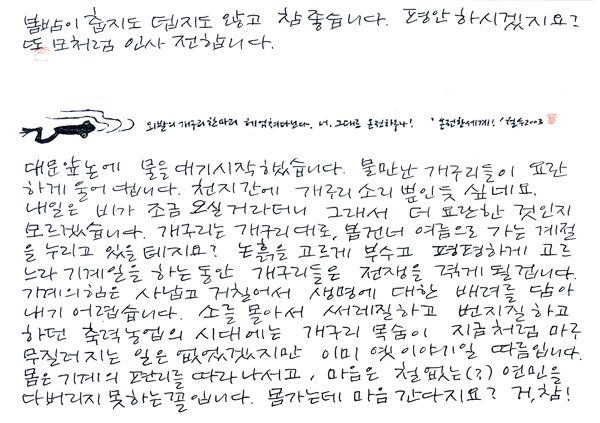 봄밤이 춥지도 덥지도 않고 참 좋습니다. 평안하시겠지요?
또 모처럼 인사 전합니다.
외발의 개구리 한마리 헤엄쳐 다닌다. 너, 그대로 온전하구나! '온전한 세계!' 철수2003
대문앞 논에 물을 대기 시작했습니다. 물만난 개구리들이 요란
하게 울어댑니다. 천지간에 개구리 소리 뿐인듯 싶네요.
내일은 비가 조금 오실거라더니 그래서 더 요란한 것인지
모르겠습니다. 개구리는 개구리대로, 봄건너 여름으로 가는 계절
을 누리고 있을테지요? 논흙을 고르게 부수고 평평하게 고르
느라 기계일을 하는동안 개구리들은 전쟁을 겪게 될겁니다.
기계의 힘은 사납고 거칠어서 생명에 대한 배려를 담아
내기 어렵습니다. 소를 몰아서 써레질하고 번지질하고
하던 축력농업의 시대에는 개구리 목숨이 지금처럼 마구
무질러지는 일은 없었겠지만 이미 옛이야기일 따름입니다.
몸은 기계의 편리를 따라나서고, 마음은 철없는(?) 연민을
다버리지 못하는 꼴입니다. 몸가는데 마음 간다지요? 거, 참!